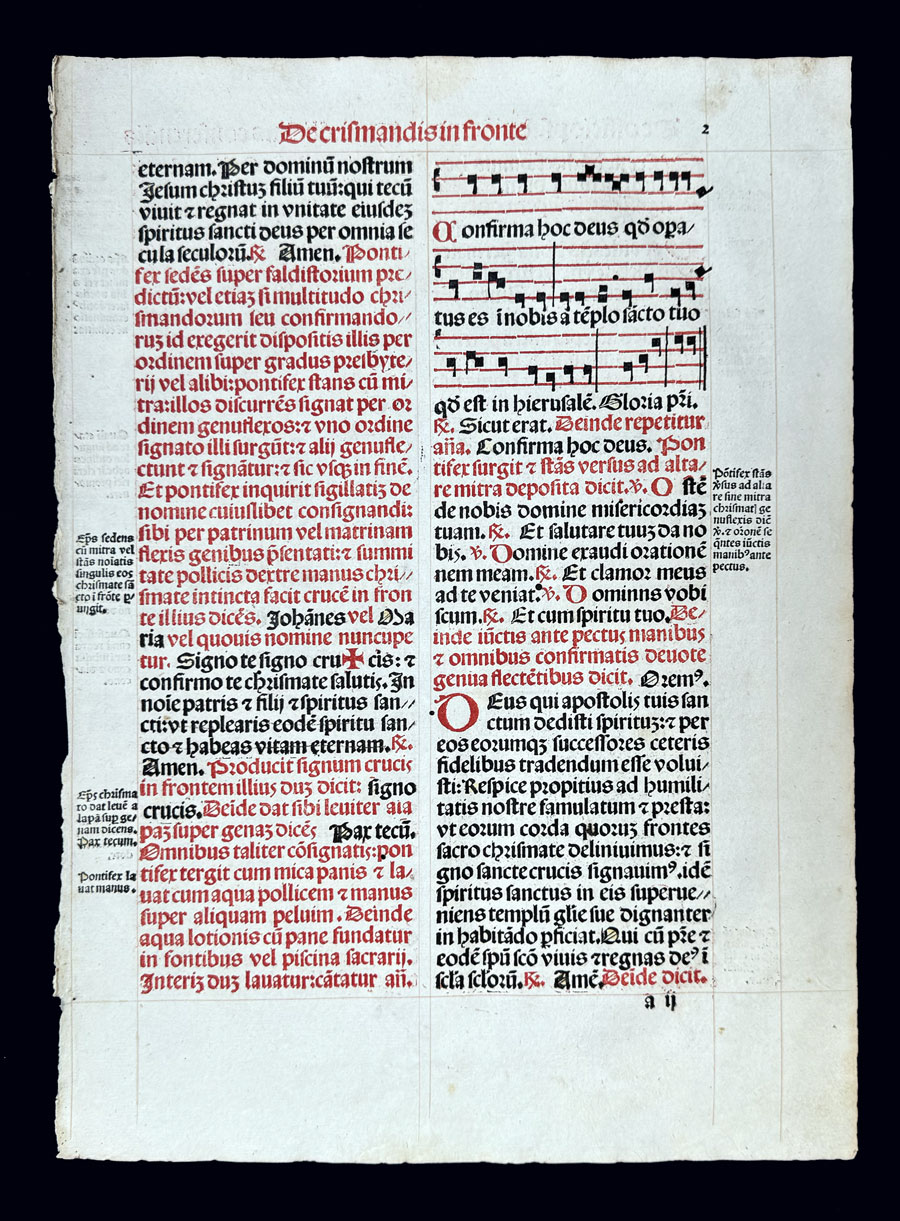 De crismandis in fronte
2
eternam. Per dominū nostrum
Jesum christuꝫ filiū tuū: qui tecū
viuit ⁊ regnat in vnitate eiusdeꝫ
spiritus sancti deus per omnia se
cula seculorū. ℟. Amen. Ponti⸗
fex sedēs super faldistorium pre⸗
dictū: vel etiaꝫ si multitudo chri⸗
smandorum seu confirmando⸗
ruꝫ id exegerit dispositis illis per
ordinem super gradus presbyte⸗
rij vel alibi: pontifex stans cū mi⸗
tra: illos discurrēs signat per or
dinem genuflexos: ⁊ vno ordine
signato illi surgūt: ⁊ alij genufle⸗
ctunt ⁊ signātur: ⁊ sic vsqꝫ in finē.
Et pontifex inquirit sigillatiꝫ de
nomine cuiuslibet consignandi:
sibi per patrinum vel matrinam
flexis genibus p̄sentati: ⁊ summi
tate pollicis dextre manus chri⸗
smate intincta facit crucē in fron
te illius dicēs. Johānes vel Ma
ria vel quouis nomine nuncupe
tur. Signo te signo cru✠cis: ⁊
confirmo te chrismate salutis. In
noīe patris ⁊ filij ⁊ spiritus san⸗
cti: vt replearis eodē spiritu san⸗
cto ⁊ habeas vitam eternam. ℟.
Amen. Producit signum crucis
in frontem illius duꝫ dicit: signo
crucis. Deīde dat sibi leuiter ala
paꝫ super genaꝫ dicēs Pax tecū.
Omnibus taliter cōsignatis: pon
tifex tergit cum mica panis ⁊ la⸗
uat cum aqua pollicem ⁊ manus
super aliquam peluim. Deinde
aqua lotionis cū pane fundatur
in fontibus vel piscina sacrarij.
Interiꝫ duꝫ lauatur: cātatur añ.
Ep̄s sedens
cū mitra vel
stās noīatis
singulis eos
chrismate sā
cto ī frōte ꝑ⸗
ungit.
Ep̄s chrisma
to dat leuē a
lapā suꝑ ge⸗
nam dicens.
Pax tecum.
Pontifex la
uat manus.
Confirma hoc deus qđ opa⸗
tus es ī nobis a tēplo sācto tuo
qđ est in hierusalē. Gloria pr̄i.
℟. Sicut erat. Deinde repetitur
aña. Confirma hoc deus. Pon
tifex surgit ⁊ stās versus ad alta⸗
re mitra deposita dicit. ℣. Ostē
de nobis domine misericordiaꝫ
tuam. ℟. Et salutare tuuꝫ da no
bis. ℣. Domine exaudi orationē
nem meam. ℟. Et clamor meus
ad te veniat. ℣. Dominns vobi
scum. ℟. Et cum spiritu tuo. De⸗
inde iūctis ante pectus manibus
⁊ omnibus confirmatis deuote
genua flectētibus dicit. Oremꝰ.
DEus qui apostolis tuis san
ctum dedisti spirituꝫ: ⁊ per
eos eorumqꝫ successores ceteris
fidelibus tradendum esse volui⸗
sti: Respice propitius ad humili⸗
tatis nostre famulatum ⁊ presta:
vt eorum corda quoruꝫ frontes
sacro chrismate deliniuimus: ⁊ si
gno sancte crucis signauimꝰ. idē
spiritus sanctus in eis superue⸗
niens templū glīe sue dignanter
in habitādo ꝑficiat. Qui cū pr̄e ⁊
eodē spū scō viuis ⁊ regnas deꝰ ī
scl̄a scl̄orū. ℟. Amē. Deīde dicit.
Pōtifex stās
v̓sus ad alta
re sine mitra
chrismat; ge
nuflexis dic̄
℣. ⁊ oronē se
q̄ntes iūctis
manibꝰ ante
pectus.
a ij